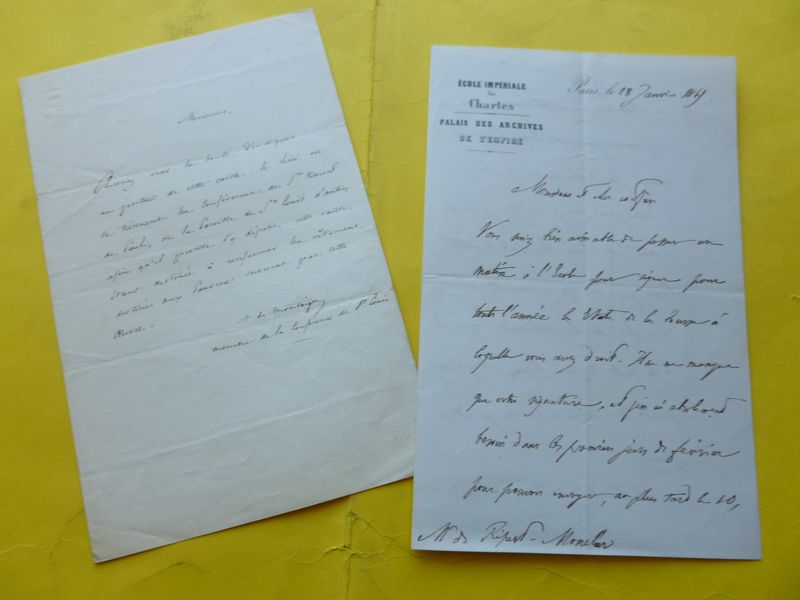 Monsieur
avez sous la
au porteur de cette caisse le lieu où
se tiennent les conférences de St Vincent
de Paul, de la paroisse de St Louis d'antin,
afin qu'il puisse l'y déposer, cette caisse
étant destinée à renfermer les vêtements
destinés aux Pauvres secourus par cette
œuvre.
de Montaigu
membre de la Conférence de St Louis
ÉCOLE IMPÉRIALE
des
Chartes
PALAIS DES ARCHIVES
DE L'EMPIRE
Paris, le 28 Janvier 1869.
Monsieur et cher
Vous serez bien aimable de passer un
matin à l'Ecole pour signer pour
toute l'année les Etats de la bourse à
laquelle vous avez droit. Il ne manque
que votre signature, et j'en ai absolument
besoin dans les premiers jours de février
pour pouvoir envoyer, au plus tard le 10,
Mr de Ripert-Monclar